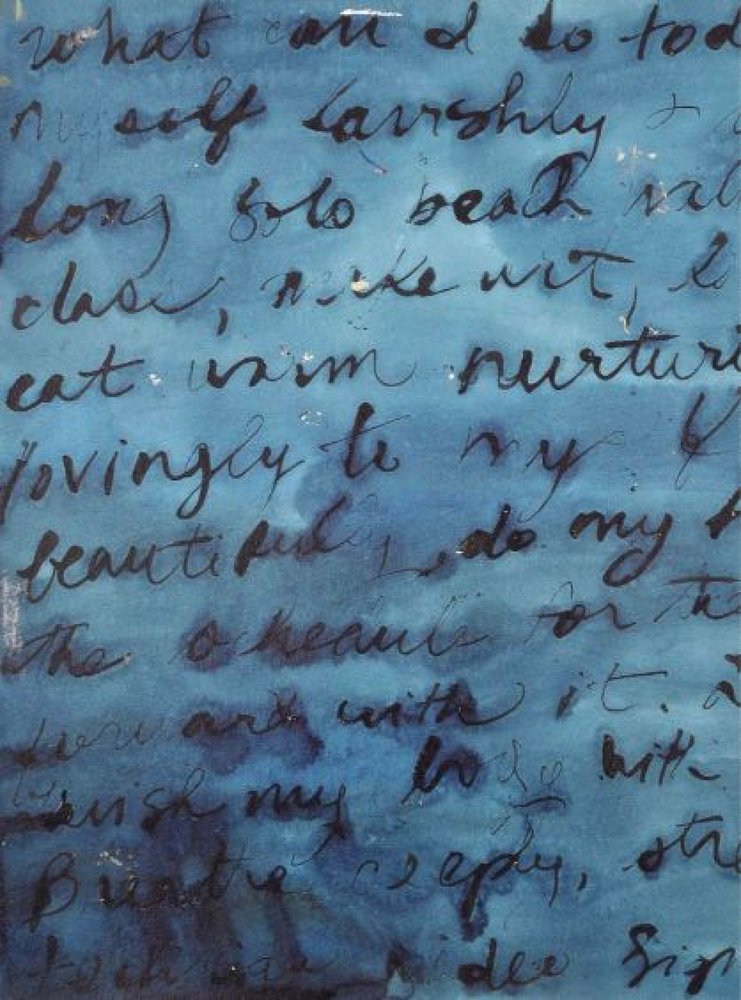 What can I do tod
my self lavishly +
Long solo beach wal
class, make art,
eat warm nurturi
lovingly to my
beautifully, do my
the for the
forward with it.
lavish my body with
Breathe deeply, stre